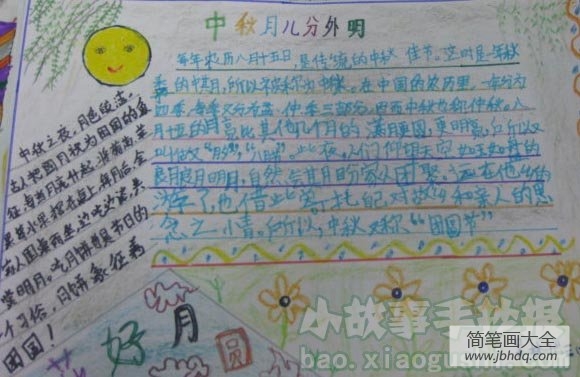 中秋月儿分外明
每年农历八月十五日,是传统的中秋佳节。这时是一年秋
季的中期,所以被称为中秋。在中国的农历里,一年分为
四季,每季又分为孟、仲、季三部分,因而中秋也称仲秋。八
月十五的月亮比其他几个月的满月更圆,更明亮,所以又
叫做“月夕”,“八月节”。此夜,人们仰望天空如玉如盘的
朗朗明月,自然会期盼家人团聚。远在他乡的
游子,也借此寄托自己对故乡和亲人的思
念之情。所以,中秋又称“团圆节”
中秋之夜,月色皎洁,
古人把圆月视为团圆的象
征
人团
赏明月。吃月饼
一个习俗,月饼象征着
团圆!
花
好
月
圆
小故事手抄报
bao.xiaogushi.com
简笔画大全
www.jbhdq.com